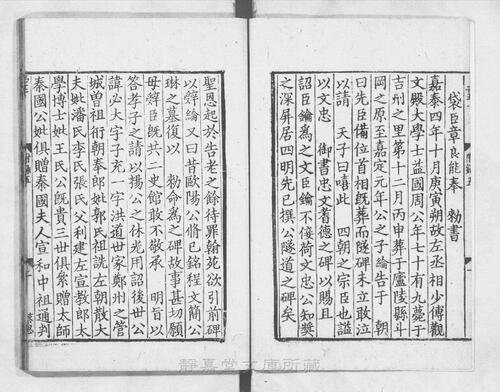 袋臣章良能奉　勑書
嘉泰四年十月庚寅朔故左丞相少傳觀
文殿大學士益國周公年七十有九薨于
吉州之里第十二月丙申葬于廬陵縣斗
岡之原至嘉定元年公之子綸告于　朝
曰先臣備位首相旣葬而隧碑未立敢泣
以請　天子曰嘻此　四朝之宗臣也謚
以文忠　御書忠文耆德之碑以賜且
詔臣鑰爲之文臣鑰不佞荷文忠公知奬
之深屏居四明先已撰公隧道之碑矣
聖恩起於告老之餘待罪翰苑欲引前碑
以辭綸又曰昔歐陽公脩已銘程文簡公
琳之墓復以　勑命爲之碑故事甚切願
毋辭臣旣共二史館敢不敬承　明旨以
答孝子之請以揚公之休光用詔後世公
諱必大字子充一字洪道世家鄭州之管
城曾祖衎朝奉郎妣郭氏祖詵左朝散大
夫妣潘氏李氏張氏父利建左宣教郎太
學博士妣王氏公旣貴三世俱絫贈太師
秦國公妣俱贈秦國夫人宣和中祖通判
靜嘉堂文庫所藏